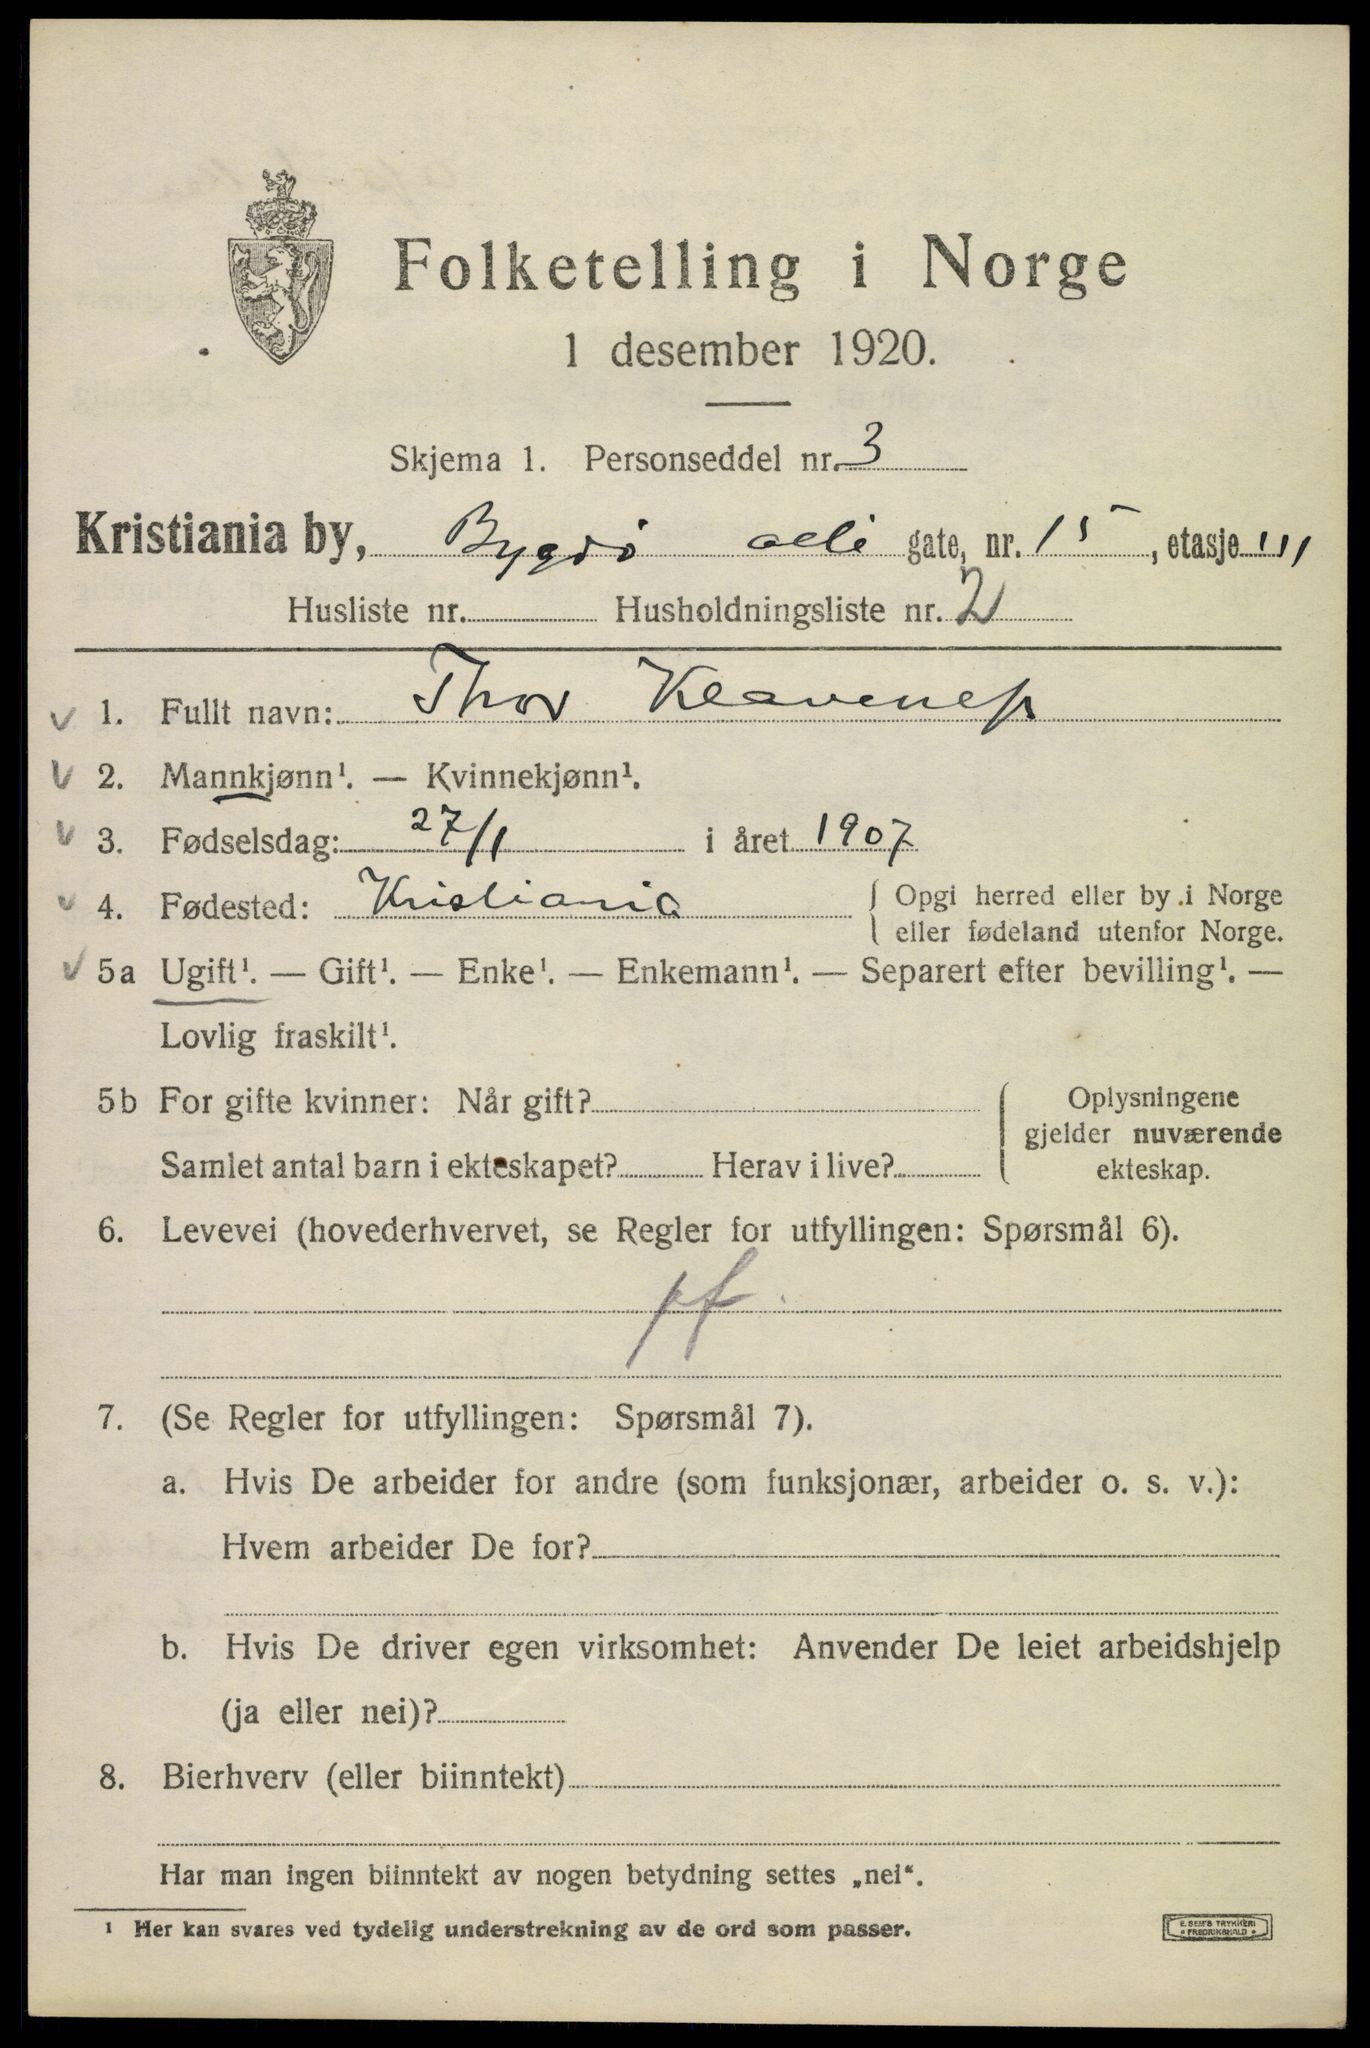 Folketelling i Norge
1 desember 1920.
Skjema 1. Personseddel nr. 3
Kristiania by, Bygdö alle gate, nr. 15, etasje III
Husliste nr. Husholdningsliste nr. 2
1. Fullt navn: Thor Klaveness
2. Mannkjønn¹. — Kvinnekjønn¹.
3. Fødselsdag: 27/1 i året 1907
4. Fødested: Kristiania { Opgi herred eller by i Norge
eller fødeland utenfor Norge.
5a Ugift¹. — Gift¹. — Enke¹. — Enkemann¹. — Separert efter bevilling¹. —
Lovlig fraskilt¹.
5b For gifte kvinner: Når gift? Oplysningene
gjelder nuværende
Samlet antal barn i ekteskapet? Herav i live? ekteskap.
6. Levevei (hovederhvervet, se Regler for utfyllingen: Spørsmål 6).
pf.
7. (Se Regler for utfyllingen: Spørsmål 7).
a. Hvis De arbeider for andre (som funksjonær, arbeider o. s. v.):
Hvem arbeider De for?
b. Hvis De driver egen virksomhet: Anvender De leiet arbeidshjelp
(ja eller nei)?
8. Bierhverv (eller biinntekt)
Har man ingen biinntekt av nogen betydning settes „nei“.
¹ Her kan svares ved tydelig understrekning av de ord som passer.
E. SEM'S TRYKKERI
* FREDRIKSHALD *